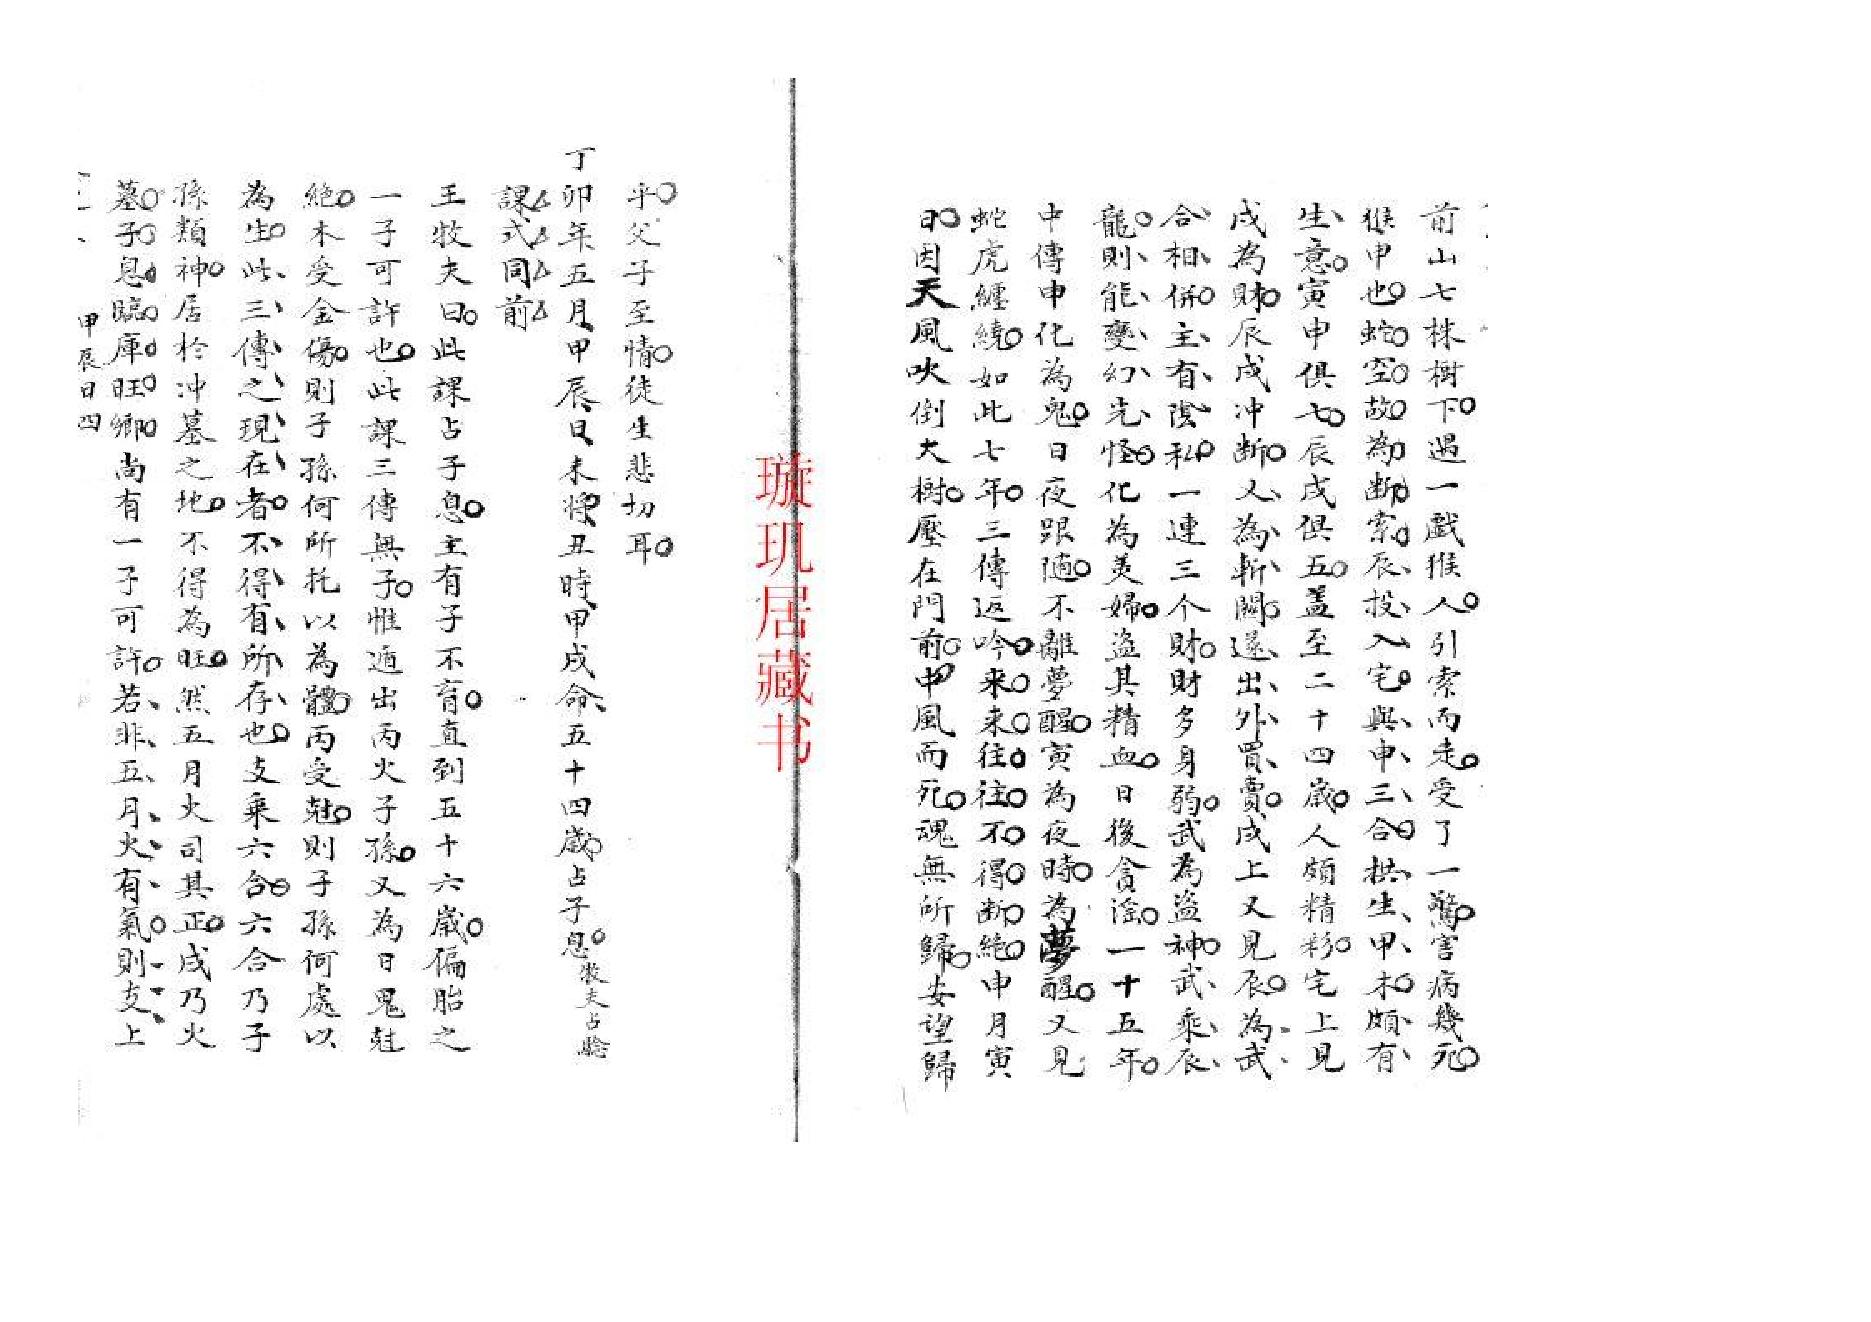 前山七株樹下遇一戲猴人引索而走受了一驚害病幾死
猴申也蛇空故為斷索辰投入宅與申三合拱生甲木頗有
生意寅申俱七辰戌俱五蓋至二十四歲人頗精彩宅上見
戌為財辰戌冲斷又為斬關遂出外買賣戌上又見辰為武
合相併主有陰私一連三个財財多身弱武為盜神武乘辰
龍則能變幻光怪化為美婦盜其精血日後貪淫一十五年
中傳申化為鬼日夜跟隨不離夢醒寅為夜時為夢醒又見
蛇虎纏繞如此七年三傳返吟来来往往不得斷絕申月寅
日因天風吹倒大樹壓在門前中風而死魂無所歸安望歸
乎父子至情徒生悲切耳
丁卯年五月甲辰日未將丑時甲戌命五十四歲占子息 牧夫占驗
課式同前
王牧夫曰此課占子息主有子不育直到五十六歲偏胎之
一子可許也此課三傳無子惟遁出丙火子孫又為日鬼尅
絕木受金傷則子孫何所托以為體丙受尅則子孫何處以
為生此三傳之現在者不得有所存也支乘六合六合乃子
孫類神居於冲墓之地不得為旺然五月火司其正戌乃火
墓子息臨庫旺鄉尚有一子可許若非五月火有氣則支上
甲辰日四
璇玑居藏书